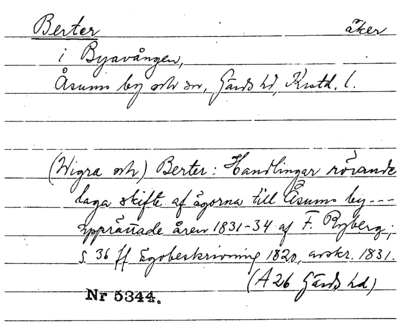 Berter åker
i Byavången,
Åsums by och sn, Gärds hd, Krstd. l.
(Wigra och) Berter: Handlingar rörande
laga skifte af ägorna till Åsums by ---
upprättade åren 1831-34 af F. Ryberg;
s. 36 ff Egobeskrivning 1820, avskr. 1831.
(A 26 Gärds hd)
Nr 5344.